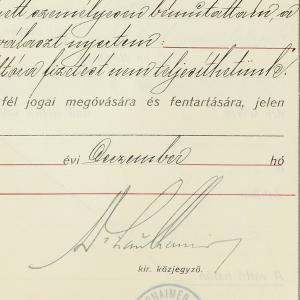 személyesen bemutattam, a
választ nyertem:
fizetést nem teljesíthetünk!
fél jogai megóvására és fentartására, jelen
évi Deczember hó
kir. közjegyző.